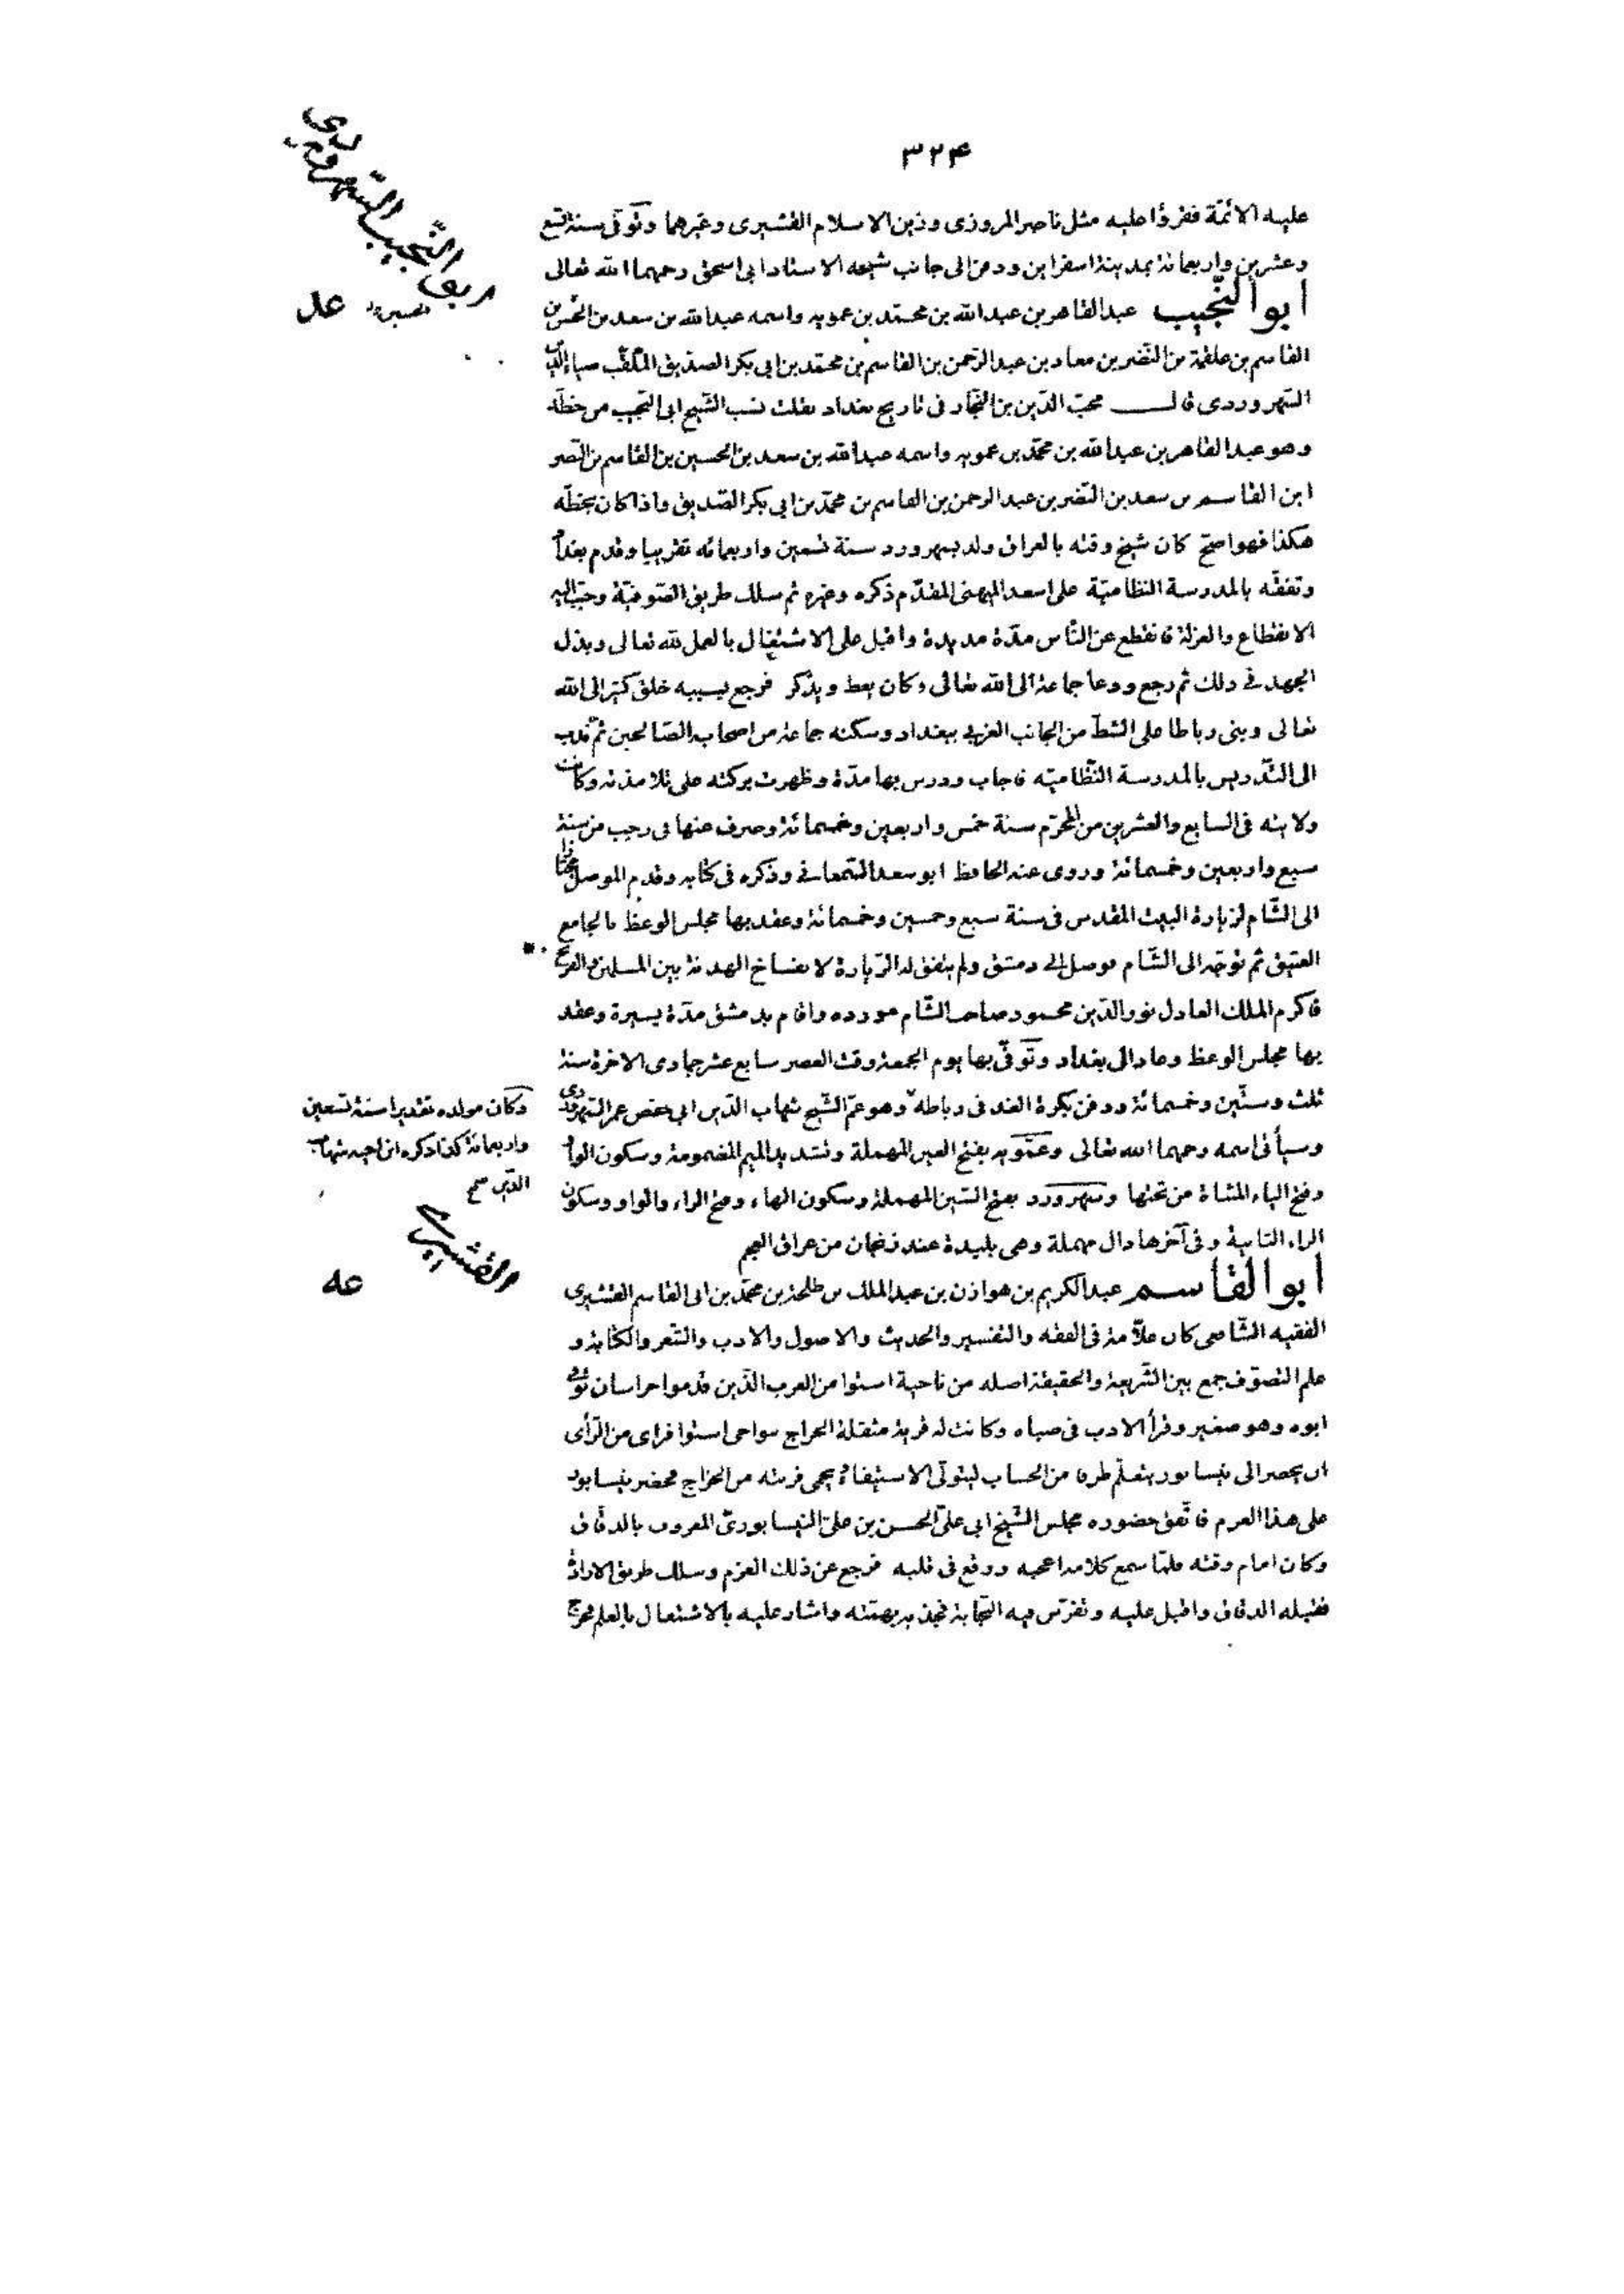 ٣٢۴
عليه الائمّة فقرؤا عليه مثل ناصر المروزى وزين الاسلام القشيرى وغيرهما وتوّفى سنة تسع
وعشرين واربعمائة بمدينة اسفراين ودفن الى جانب شيخه الاستاد ابى اسحق رحمهما الله تعالى
ابو النّجيب عبد القاهر بن عبد الله بن محمّد بن عمويه واسمه عبد الله بن سعد بن الحسن بن
القاسم بن علقمة بن النّضر بن معاد بن عبد الرّحمن بن القاسم بن محمّد بن ابى بكر الصدّيق الملّقب ضياء الدين
السّهروردى قال محبّ الدّين بن النّجّار فى تاريخ بغداد نقلت نسب الشّيخ ابى النّجيب من خطّه
وهو عبد القاهر بن عبد الله بن محمّد بن عمويه واسمه عبد الله بن سعد بن الحسين بن القاسم بن النّصر
ابن القاسم بن سعد بن النّضر بن عبد الرحمن بن القاسم بن محمّد بن ابى بكر الصّديق واذا كان بخطّه
هكذا فهو اصحّ كان شيخ وقته بالعراق ولد بسهرورد سنة تسعين واربعمائه تقريبا وقدم بغداد
وتفقّه بالمدرسة النظاميّة على اسعد الميهنى المقدّم ذكره وغيره ثم سلك طريق الصّوفيّة وحبّب اليه
الانقطاع والعزلة فانقطع عن النّاس مدّة مديدة واقبل على الاشتغال بالعمل لله تعالى وبذل
الجهد فى ذلك ثم رجع ودعا جماعة الى الله تعالى وكان يعظ ويذكر فرجع بسببه خلق كثير الى الله
تعالى وبنى رباطا على الشطّ من الجانب الغربى ببغداد وسكنه جماعة من اصحابه الصّالحين ثمّ ندب
الى التّدريس بالمدرسة النّظاميّه فاجاب ودرس بها مدّة وظهرت بركته على تلامذته وكانت
ولايته فى السابع والعشرين من المحرّم سنة خمس واربعين وخمسمائة وصرف عنها فى رجب من سنة
سبع واربعين وخمسمائة وروى عنه الحافظ ابو سعد السّمعانى وذكره فى كتابه وقدم الموصل مجتازا
الى الشّام لزيارة البيت المقدس فى سنة سبع وخمسين وخمسمائة وعقد بها مجلس الوعظ بالجامع
العتيق ثم توجّه الى الشّام فوصل الى دمشق ولم يتّفق له الزّيارة لانفساخ الهدنة بين المسلمين والفرنج
فاكرم الملك العادل نور الدّين محمود صاحب الشّام مورده واقام بدمشق مدّة يسيرة وعقد
بها مجلس الوعظ وعاد الى بغداد وتوّفى بها يوم الجمعة وقت العصر سابع عشر جمادى الاخرة سنة
ثلث وستّين وخمسمائة ودفن بكرة الغد فى رباطه وهو عمّ الشّيخ شهاب الدّين ابى حفص عمر السّهروردى
وسيأتى اسمه رحمهما الله تعالى وعمّويه بفتح العين المهملة وتشديد الميم المضمومة وسكون الواو
وفتح الياء المثناة من تحتها وسهرورد بضمّ السّين المهملة وسكون الهاء وفتح الراء والواو وسكون
الراء الثانية وفى آخرها دال مهملة وهى بليدة عند زنجان من عراق العجم
ابو القاسم عبد الكريم بن هوازن بن عبد الملك بن طلحة بن محمّد بن ابى القاسم القشيرى
الفقيه الشّافعى كان علّامة فى الفقه والتفسير والحديث والاصول والادب والشّعر والكتابة و
علم التصوّف جمع بين الشّريعة والحقيقة اصله من ناحية استوا من العرب الّذين قدموا خراسان توفى
ابوه وهو صغير وقرأ الادب فى صباه وكانت له قرية مثقلة الخراج بنواحى استوا فراى من الرّأى
ان يحضر الى نيسابور يتعلّم طرفا من الحساب ليتولّى الاستيفاء ويحمى قريته من الخراج فحضر نيسابور
على هذا العزم فاتّفق حضوره مجلس الشّيخ ابى علىّ الحسن بن علىّ النيسابورىّ المعروف بالدقّاق
وكان امام وقته فلمّا سمع كلامه اعجبه ووقع فى قلبه فرجع عن ذلك العزم وسلك طريق الارادة
فقبله الدقاق واقبل عليه وتفرّس فيه النّجابة فجذبه بهمّته واشار عليه بالاشتغال بالعلم فخرج
ابو النّجيب السّهروردى
عل
وكان مولده تقديرا سنة تسعين
واربعمائة كذا ذكره ابن اخيه شهاب
الدّين صح
القشيرى
عه